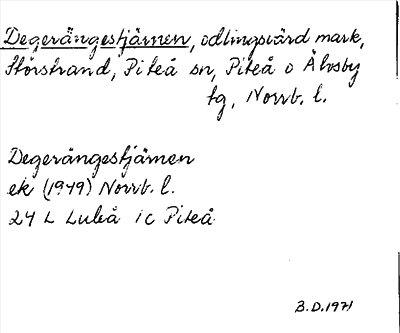 Degerängestjärnen, odlingsvärd mark,
Storstrand, Piteå sn, Piteå o Älvsby
tg, Norrb. l.
Degerängestjärnen
ek (1949) Norrb. l.
24 L Luleå ic Piteå
B.D. 1971